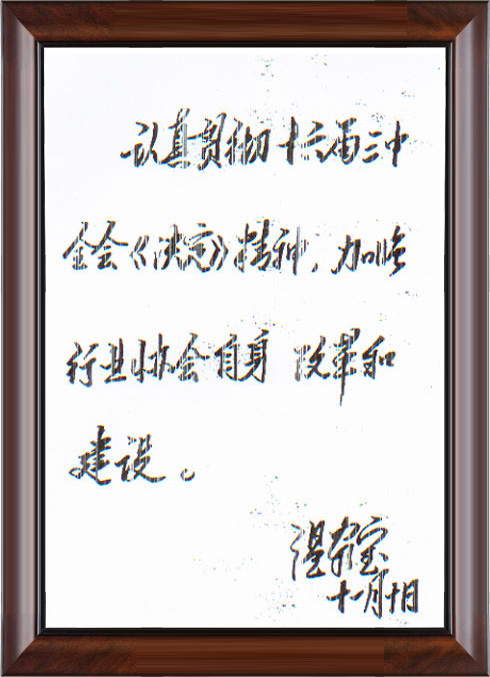 认真贯彻十六届三中
全会《决定》精神，加快
行业协会自身改革和
建设。
温家宝
十一月十日